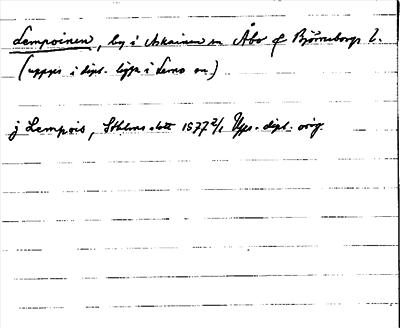 Lempoinen, by i Askainen sn Åbo o Björneborgs l.
(uppges i dipl. ligga i Lemo sn.)
j Lempois, Sthlms slott 1577 2/1 Upps. dipl. orig.